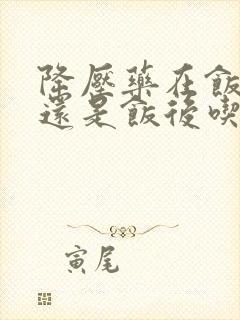 降壓藥在飯
還是飯後喫
寅尾